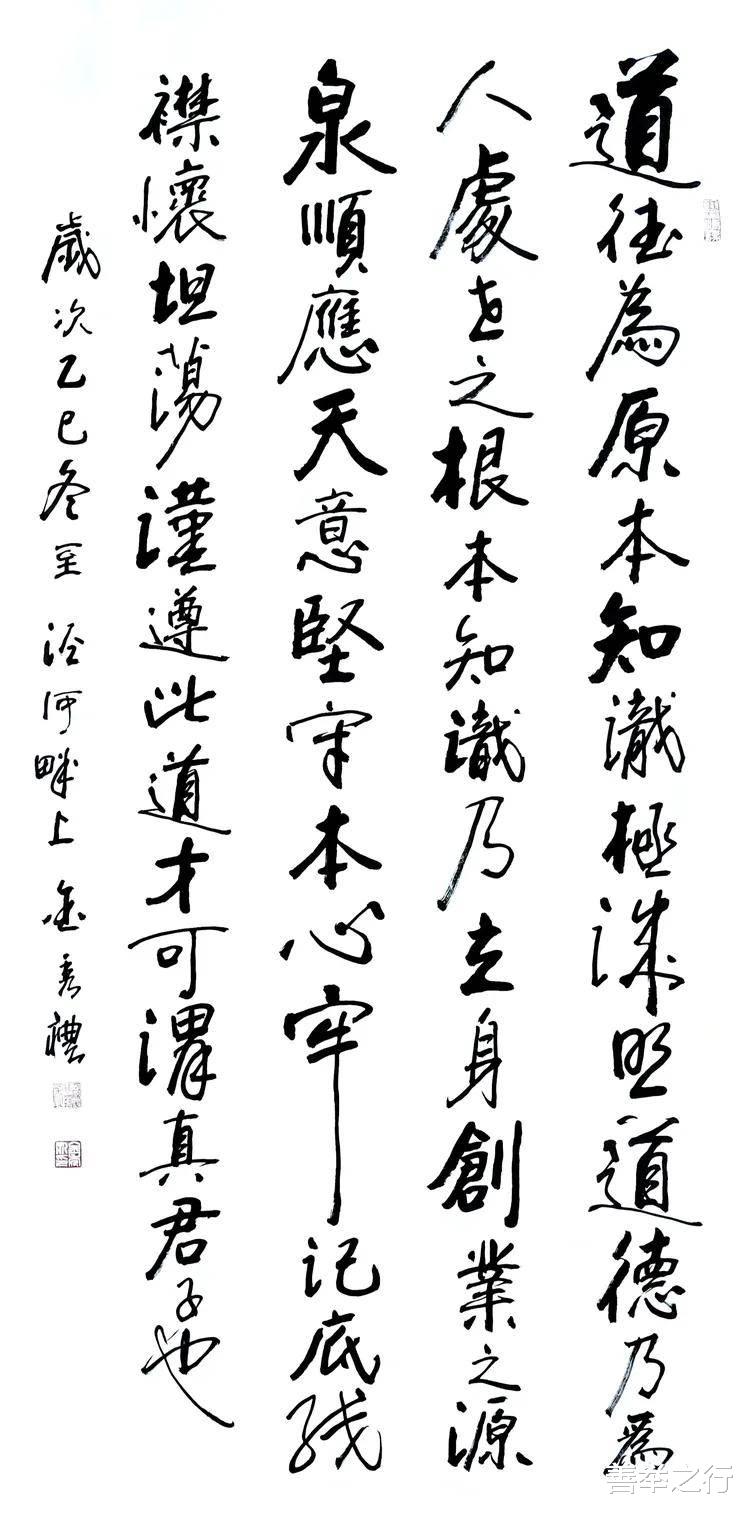 道德為原本知識極誠明道德乃為
人處世之根本知識乃立身創業之源
泉順應天意堅守本心牢記底线
襟懷坦蕩謹遵此道才可謂真君子也
歲次乙巳冬至泾河畔上金秀禮
善举之行